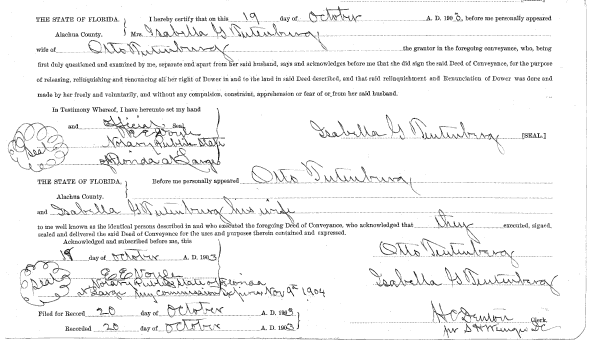 THE STATE OF FLORIDA, I hereby certify that on this 19 day of October A. D. 190 , before me personally appeared
Alachua County. Mrs Isabella G Tutenburg
wife of Otto Tutenburg the grantor in the foregoing conveyance, who, being
first duly questioned and examined by me, separate and apart from her said husband, says and acknowledges before me that she did sign the said Deed of Conveyance, for the purpose
of releasing, relinquishing and renouncing all her right of Dower in and to the land in said Deed described, and that said relinquishment and Renunciation of Dower was done and
made by her freely and voluntarily, and without any compulsion, constraint, apprehension or fear of or from her said husband.
In Testimony Whereof, I have hereunto set my hand
and official Seal
Seal
Notary Public State
of Florida at Large
Isabella G Tutenburg [SEAL.]
THE STATE OF FLORIDA, Before me personally appeared Otto Tutenburg
Alachua County.
and Isabella G Tutenburg his wife
to me well known as the identical persons described in and who executed the foregoing Deed of Conveyance, who acknowledged that they executed, signed,
sealed and delivered the said Deed of Conveyance for the uses and purposes therein contained and expressed.
Acknowledged and subscribed before me, this
19 day of October A. D. 1903
Otto Tutenburg
Seal
Notary Public State of Florida
at Large My Commission Expires Nov 9th 1904
Isabella G Tutenburg
Filed for Record 20 day of October A. D. 1903
H C Denton Clerk.
Recorded 20 day of October A. D. 1903
per S H Wienges DC